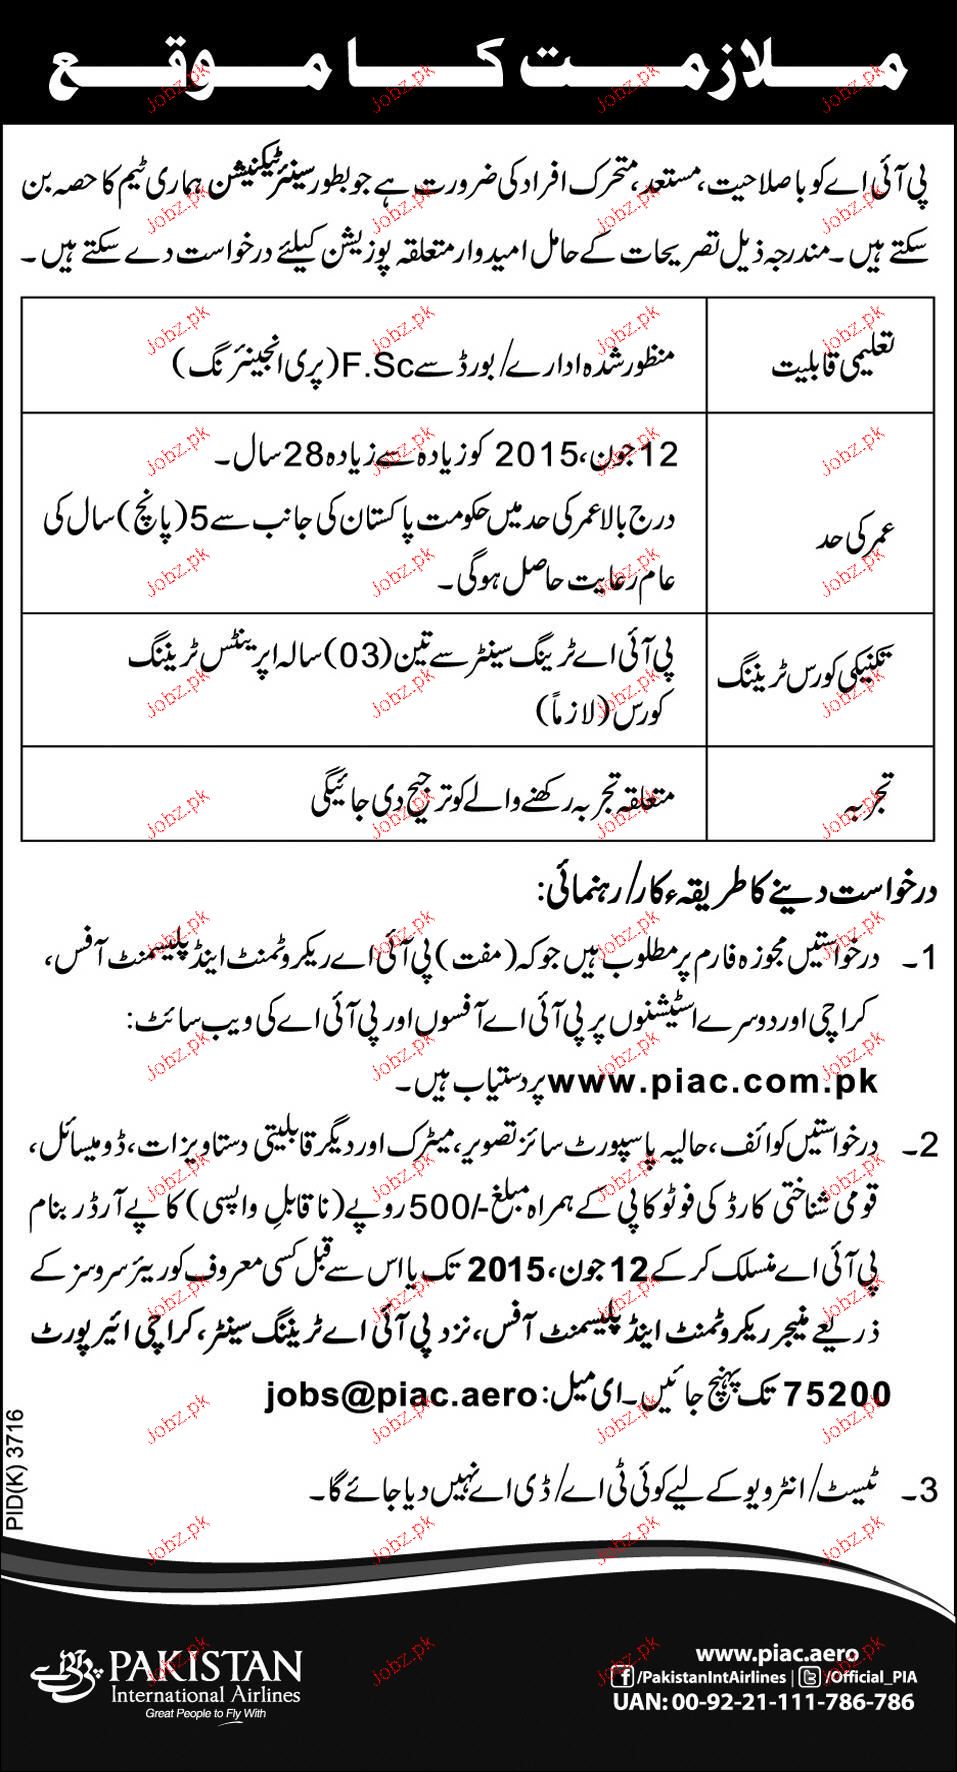 ملازمت کا موقع
پی آئی اے کو باصلاحیت، مستعد، متحرک افراد کی ضرورت ہے جو بطور سینئر ٹیکنیشن ہماری ٹیم کا حصہ بن
سکتے ہیں۔ مندرجہ ذیل تصریحات کے حامل امیدوار متعلقہ پوزیشن کیلئے درخواست دے سکتے ہیں۔
تعلیمی قابلیت
منظور شدہ ادارے/بورڈ سے F.Sc (پری انجینئرنگ)
عمر کی حد
12 جون، 2015 کو زیادہ سے زیادہ 28 سال۔
درج بالا عمر کی حد میں حکومت پاکستان کی جانب سے 5 (پانچ) سال کی
عام رعایت حاصل ہوگی۔
تکنیکی کورس ٹریننگ
پی آئی اے ٹرینگ سینٹر سے تین (03) سالہ اپرینٹس ٹریننگ
کورس (لازماً)
تجربہ
متعلقہ تجربہ رکھنے والے کو ترجیح دی جائیگی
درخواست دینے کا طریقہء کار/رہنمائی:
1۔ درخواستیں مجوزہ فارم پر مطلوب ہیں جو کہ (مفت) پی آئی اے ریکروٹمنٹ اینڈ پلیسمنٹ آفس،
کراچی اور دوسرے اسٹیشنوں پر پی آئی اے آفسوں اور پی آئی اے کی ویب سائٹ:
www.piac.com.pk پر دستیاب ہیں۔
2۔ درخواستیں کوائف، حالیہ پاسپورٹ سائز تصویر، میٹرک اور دیگر قابلیتی دستاویزات، ڈومیسائل،
قومی شناختی کارڈ کی فوٹو کاپی کے ہمراہ مبلغ -/500 روپے (ناقابلِ واپسی) کا پے آرڈر بنام
پی آئی اے منسلک کر کے 12 جون، 2015 تک یا اس سے قبل کسی معروف کوریئر سروسز کے
ذریعے منیجر ریکروٹمنٹ اینڈ پلیسمنٹ آفس، نزد پی آئی اے ٹریننگ سینٹر، کراچی ائیرپورٹ
75200 تک پہنچ جائیں۔ ای میل: jobs@piac.aero
3۔ ٹیسٹ/انٹرویو کے لیے کوئی ٹی اے/ڈی اے نہیں دیا جائے گا۔
PID(K) 3716
PIA پی آئی اے
PAKISTAN
International Airlines
Great People to Fly With
www.piac.aero
/PakistanIntAirlines | /Official_PIA
UAN: 00-92-21-111-786-786
Jobz.pk